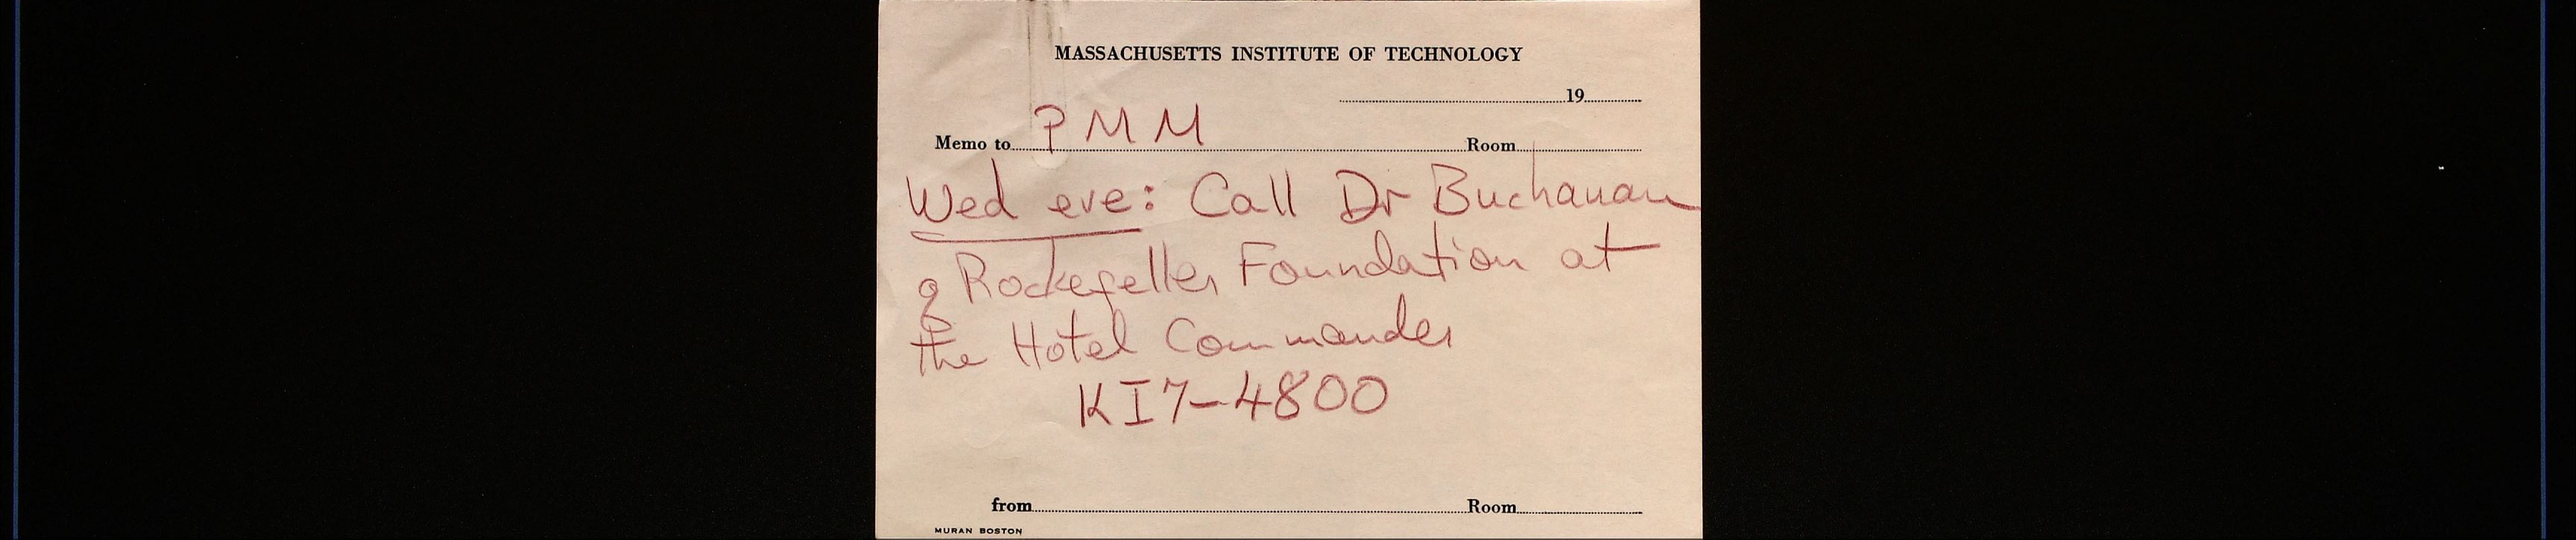 MASSACHUSETTS INSTITUTE OF TECHNOLOGY
19
Memo to PMM Room
Wed eve: Call Dr Buchanan
of Rockefeller Foundation at
the Hotel Commander
KI7-4800
from Room
MURAN BOSTON